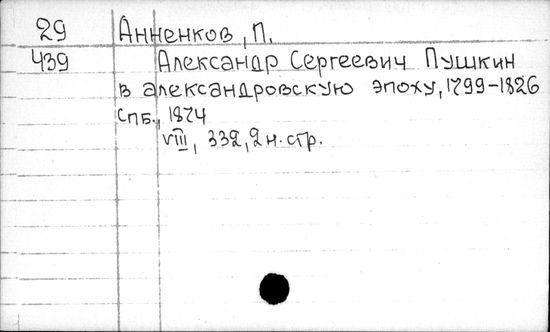 29 Анненков, П.
439 Александр Сергеевич Пушкин
в александровскую эпоху, 1799-1826
Спб., 1874
VIII, 332, 2 н. стр.